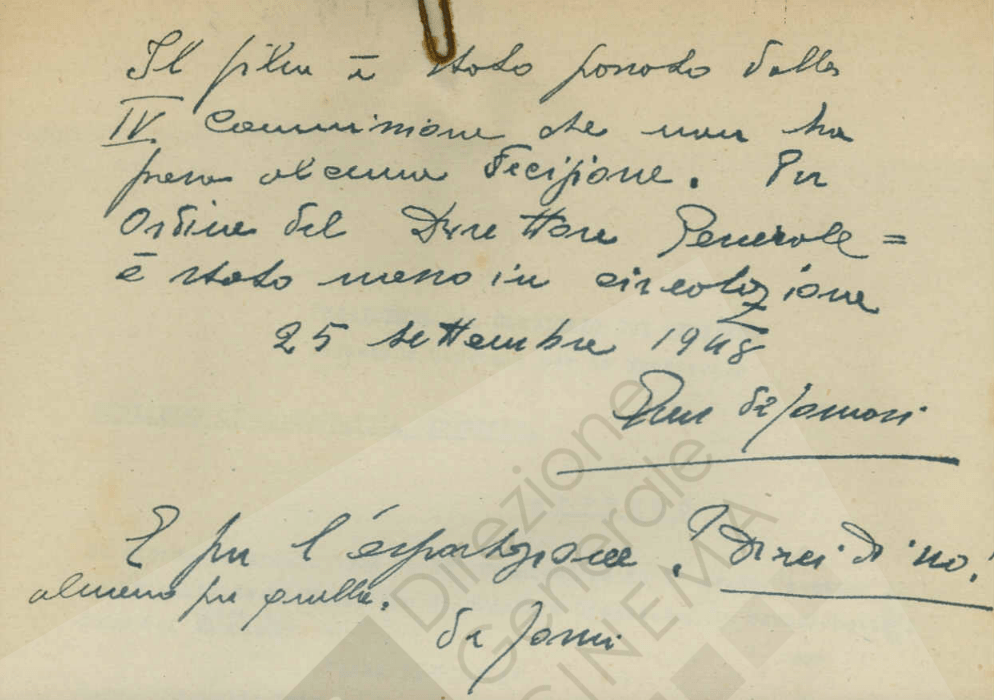 Il film è stato passato dalla
IV. Commissione che non ha
preso alcuna decisione. Per
Ordine del Direttore Generale =
è stato messo in circolazione
25 settembre 1948
de Tomasi
E per l'esportazione? Direi di no!
almeno per quella.
de Tomasi
Direzione
Generale
CINEMA